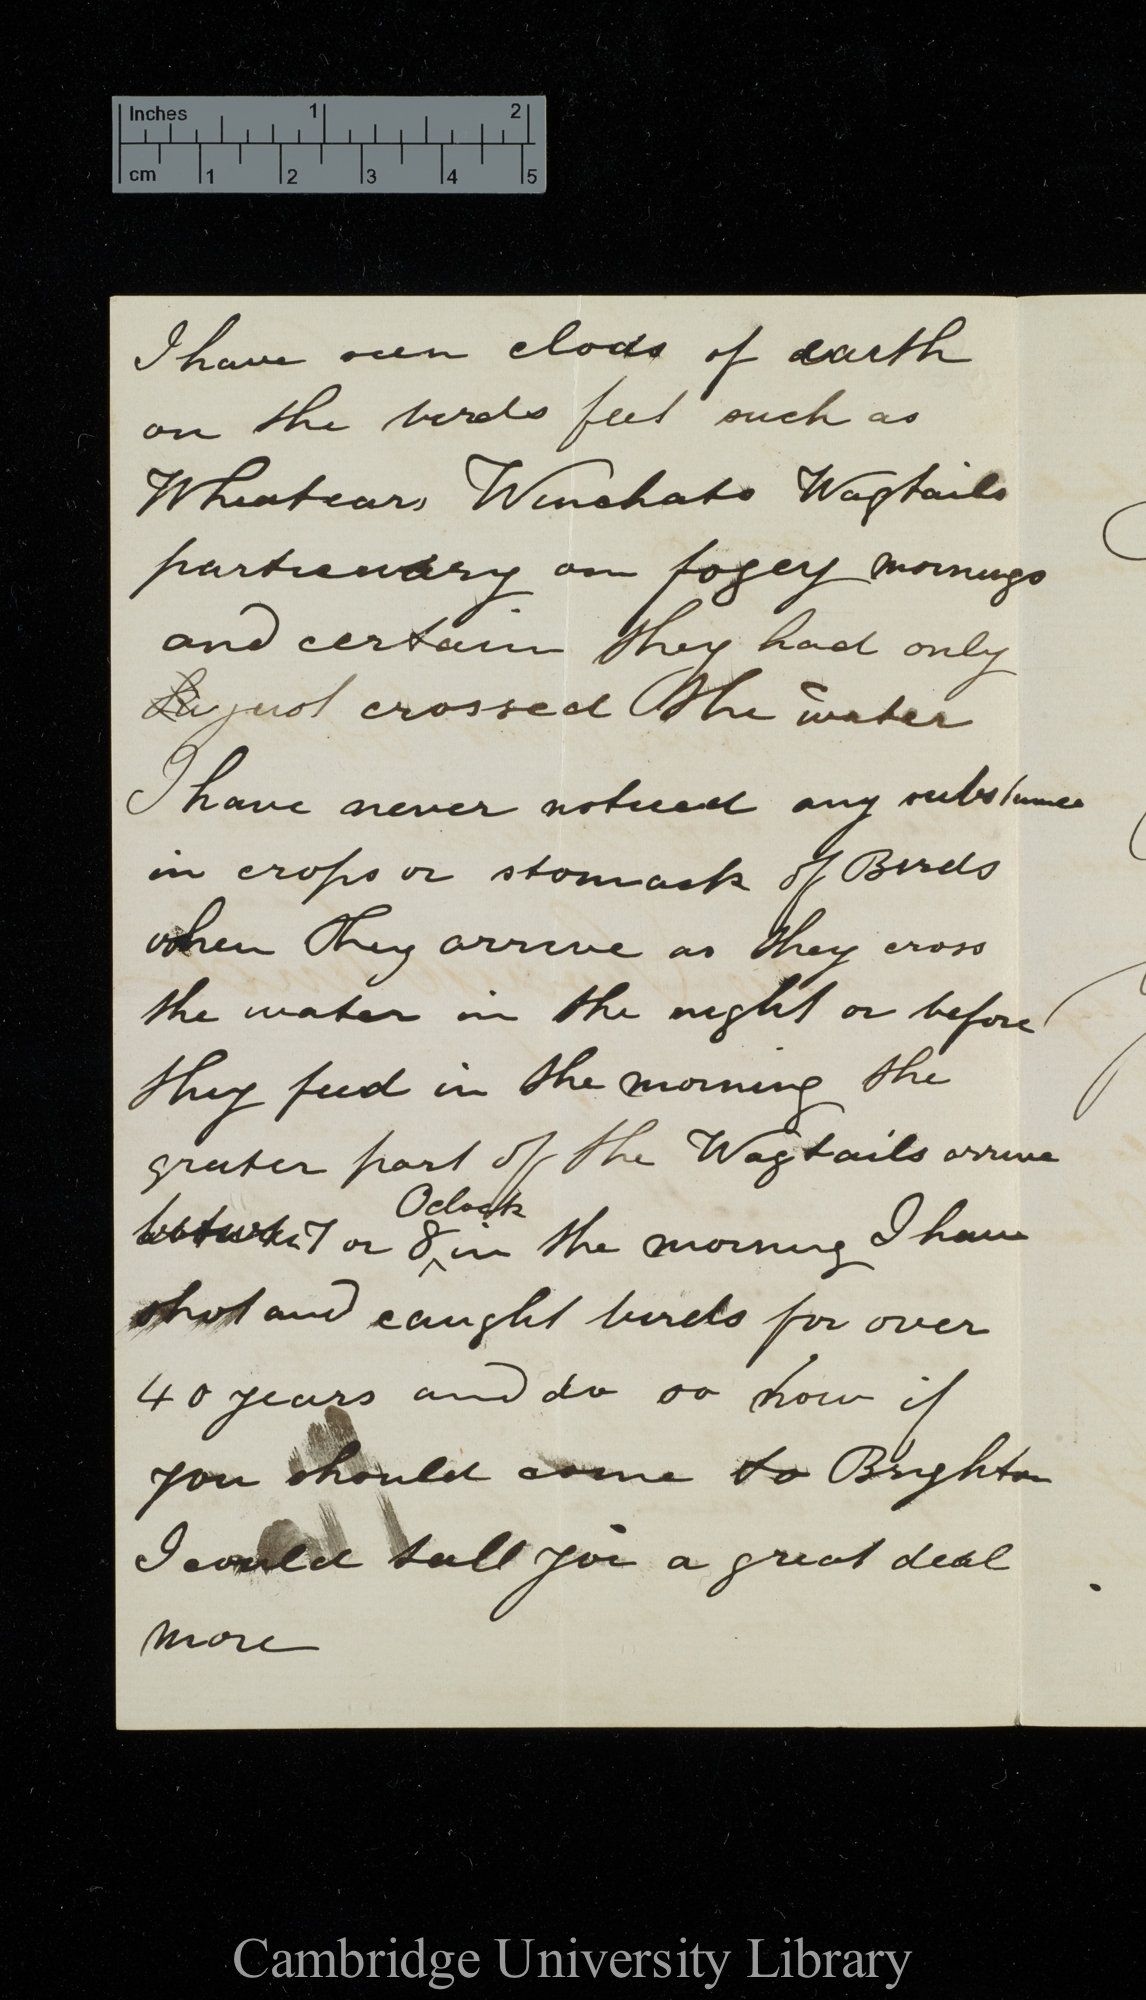 Inches 1 2
cm 1 2 3 4 5
I have seen clods of earth
on the birds feet such as
Wheatears Winchats Wagtails
particulary on fogey mornings
and certain they had only
just crossed the water
I have never noticed any substance
in crops or stomack of Birds
when they arrive as they cross
the water in the night or before
they feed in the morning the
grater part of the Wagtails arrive
Oclock
7 or 8 in the morning I have
shot and caught birds for over
40 years and do so now if
you should come to Brighton
I could tell you a great deal
more
Cambridge University Library